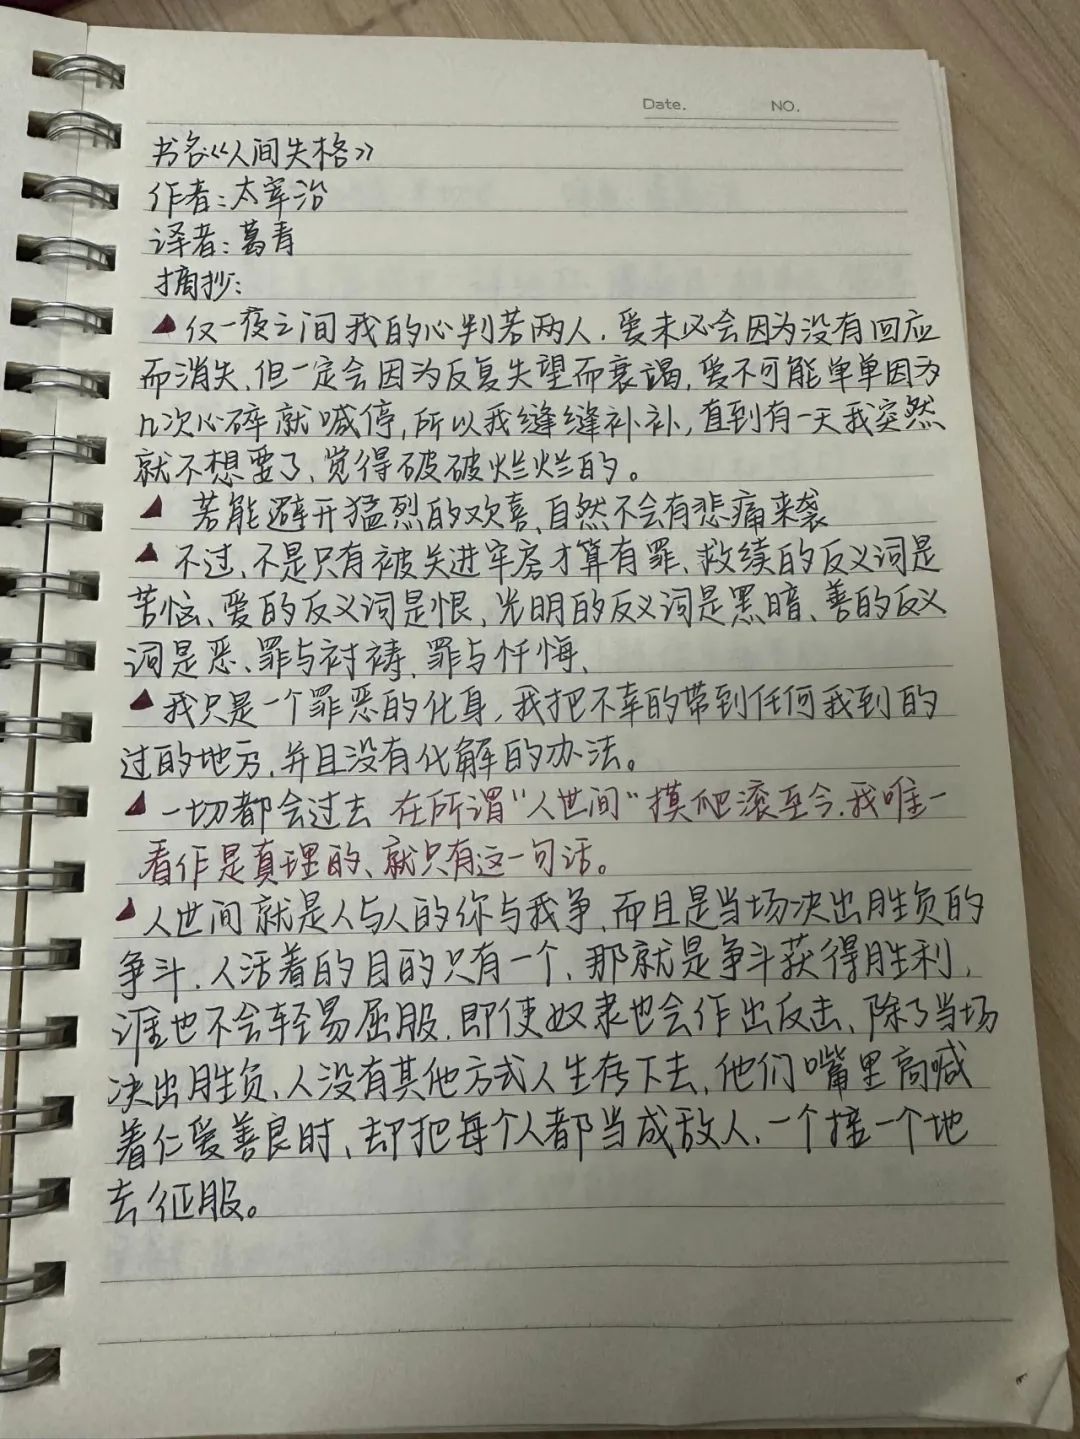 Date. NO.
书名《人间失格》
作者:太宰治
译者:葛青
摘抄:
仅一夜之间我的心判若两人,爱未必会因为没有回应
而消失,但一定会因为反复失望而衰竭,爱不可能单单因为
几次心碎就喊停,所以我缝缝补补,直到有一天我突然
就不想要了、觉得破破烂烂的。
若能避开猛烈的欢喜、自然不会有悲痛来袭
不过、不是只有被关进牢房才算有罪、救续的反义词是
苦恼、爱的反义词是恨、光明的反义词是黑暗、善的反义
词是恶、罪与祷祷、罪与忏悔、
我只是一个罪恶的化身,我把不幸的带到任何我到的
过的地方,并且没有化解的办法。
一切都会过去 在所谓“人世间”摸爬滚至今,我唯一
看作是真理的、就只有这一句话。
人世间就是人与人的你与我争、而且是当场决出胜负的
争斗,人活着的目的只有一个、那就是争斗获得胜利,
谁也不会轻易屈服,即使奴隶也会作出反击、除了当场
决出胜负、人没有其他方式人生存下去,他们嘴里高喊
着仁爱善良时、却把每个人都当成敌人、一个接一个地
去征服。